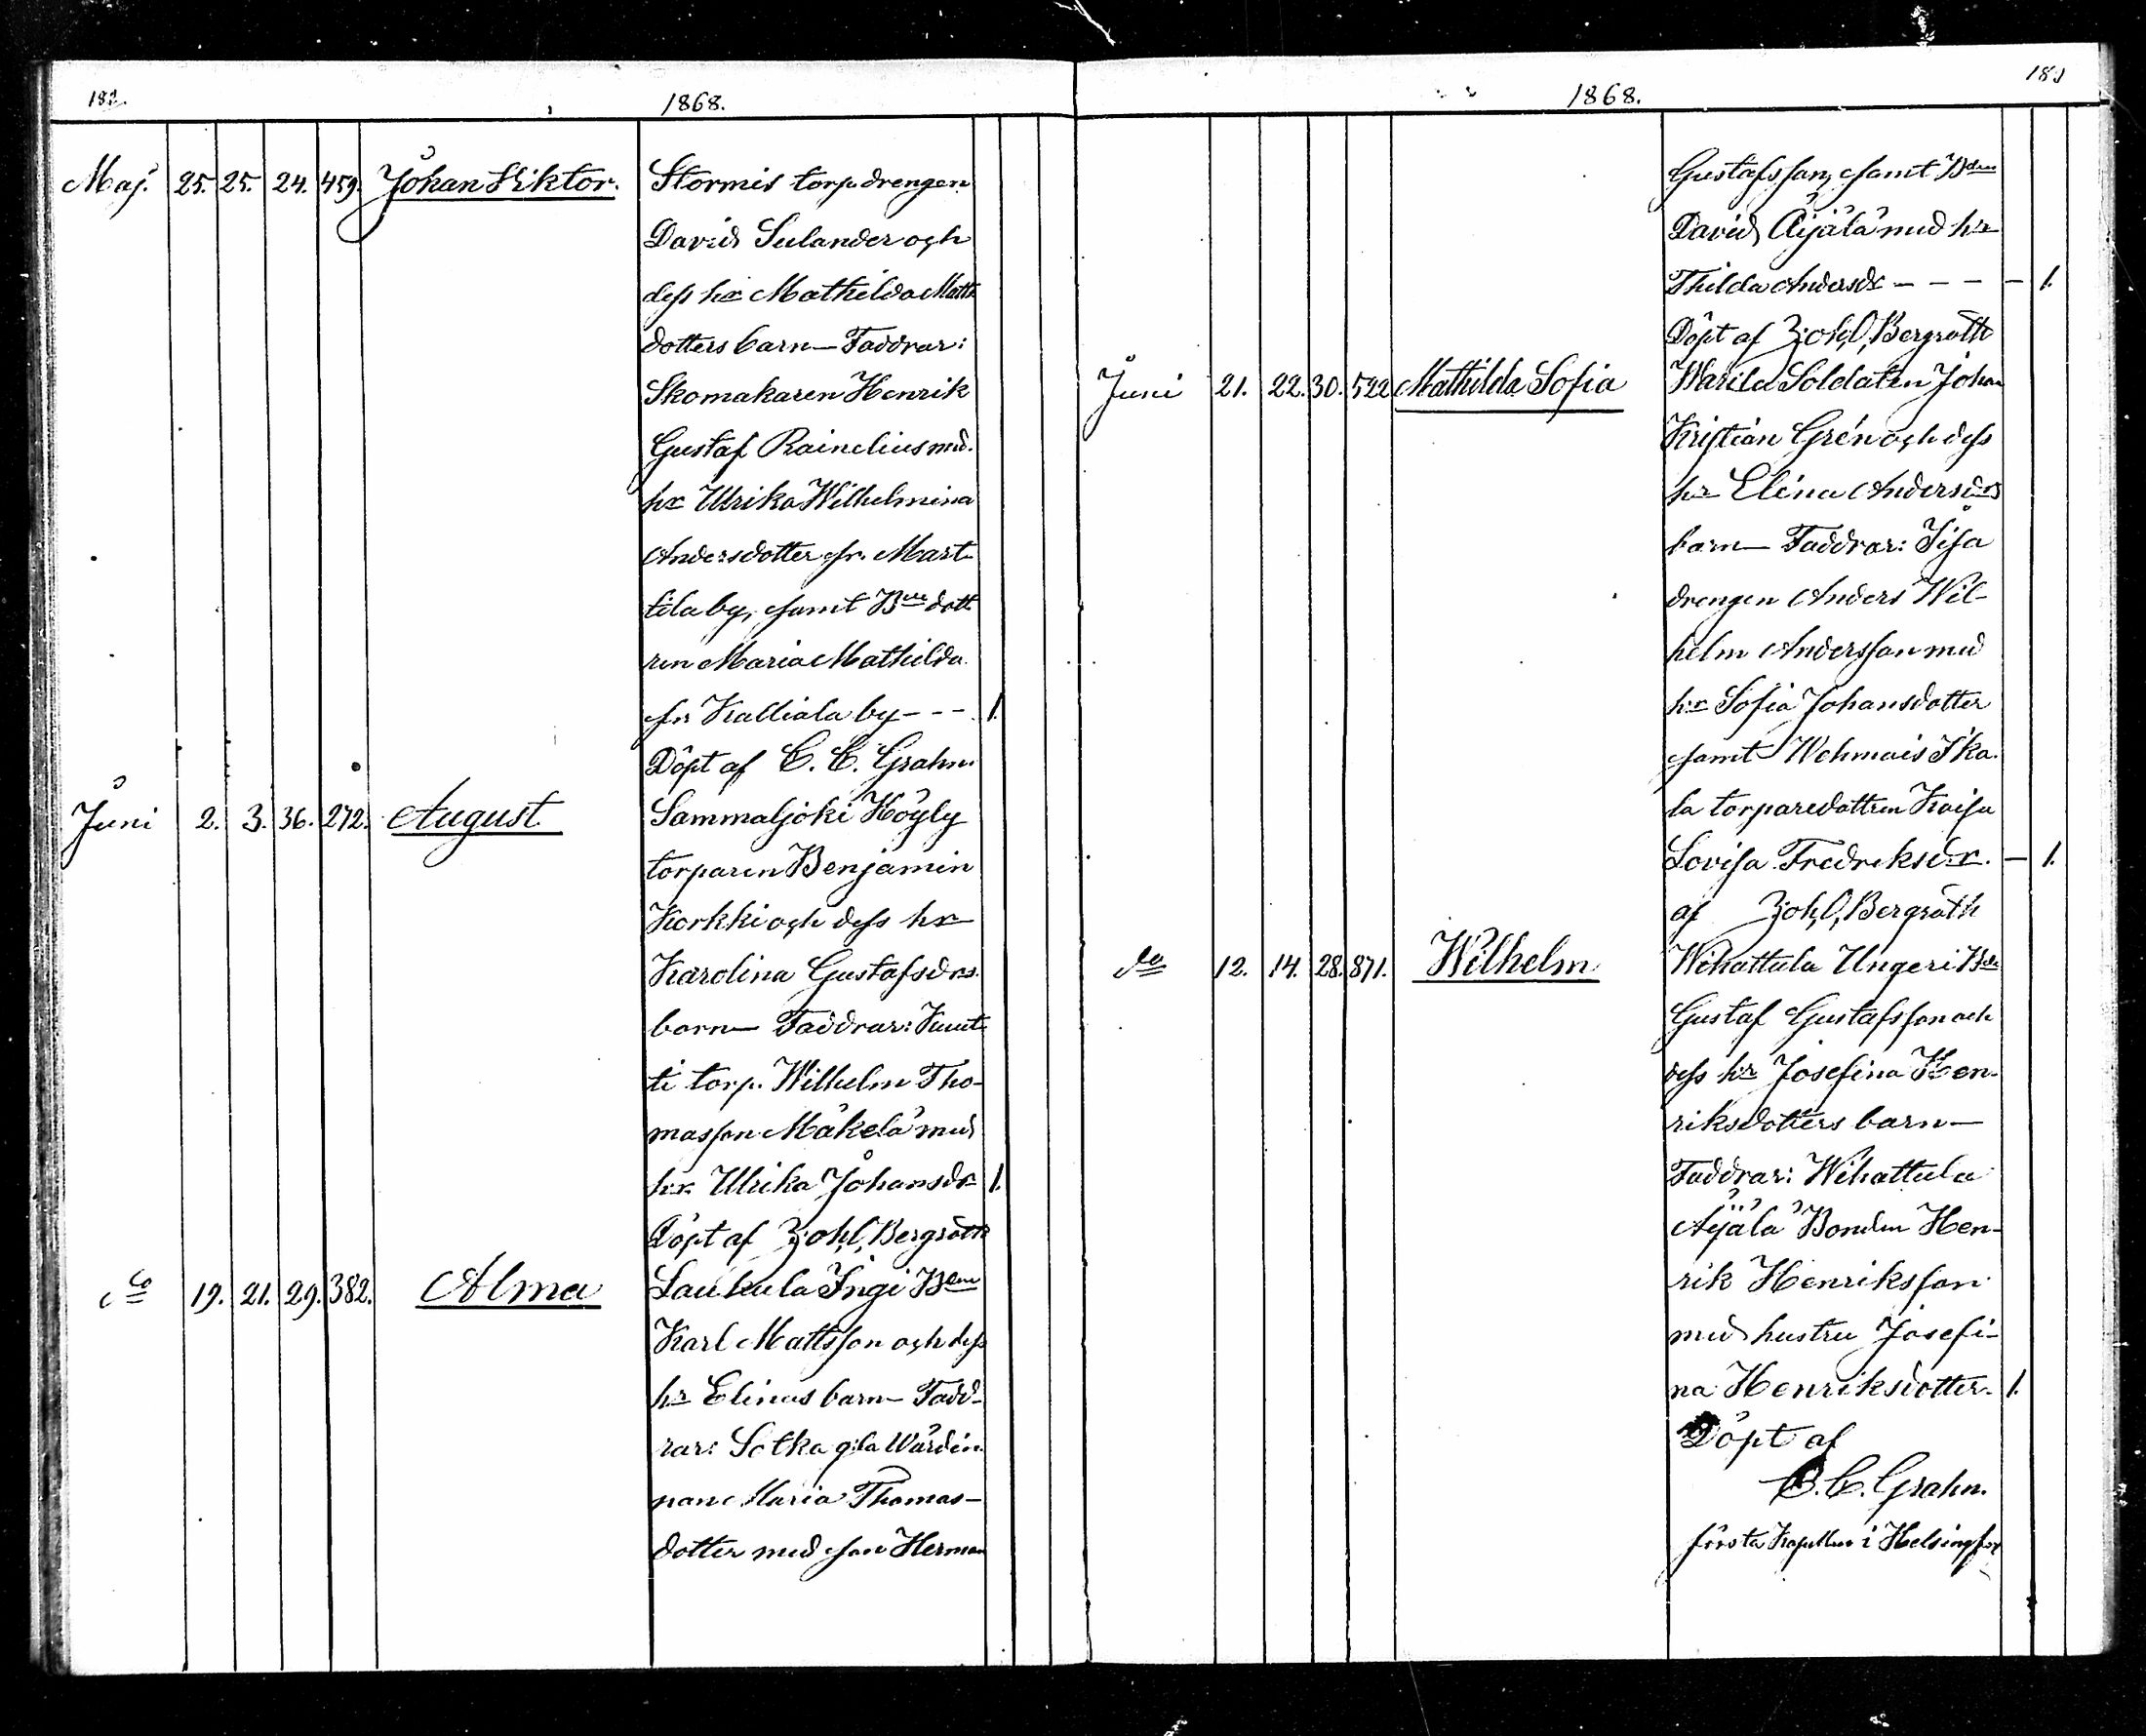 182.
1868.
Maj. 25. 25. 24. 459. Johan Viktor. Stormis torp. drengen
David Sulander och
dess hr Mathilda Matts
dotters barn — Faddrar:
Skomakaren Henrik
Gustaf Rainelius med.
hr Ulrika Wilhelmina
Andersdotter fr. Mart
tila by, samt Bne dott
ren Maria Mathilda
fr Kalliala by - - - 1.
Döpt af C. C. Grahn.
Juni 2. 3. 36. 272. August Sammaljoki Höyly
torparen Benjamin
Korkki och dess hr
Karolina Gustafsdrs.
barn — Faddrar: Kuut
ti torp. Wilhelm Tho-
masson Mäkelä med
hr. Ulrika Johansdr 1.
Döpt af Joh. Bergroth
do 19. 21. 29. 382. Alma Laukula Ingi Bden
Karl Mattsson och dess
hr Elinas barn — Fadd-
rar: Sotka g:la Wärdin
nan Maria Thomas-
dotter med son Herman
1868.
Gustafsson, samt Bden
David Äijälä med hr
Thilda Andersdr - - - - 1.
Döpt af Joh. Bergroth
Juni 21. 22. 30. 522 Mathilda Sofia Warila Soldaten Johan
Kristian Grén och dess
hr Elina Andersdrs
barn — Faddrar: Sisa
drengen Anders Wil-
helm Andersson med
hr Sofia Johansdotter
samt Wehmais Ska.
la torparedottren Kaisa
Lovisa Fredriksdr. — 1.
af Joh. Bergroth
do 12. 14. 28. 871. Wilhelm Wihattula Ungeri Bde
Gustaf Gustafsson och
dess hr Josefina Hen-
riksdotters barn —
Faddrar: Wihattula
Äijälä Bonden Hen-
rik Henriksson
med hustru Josefi-
na Henriksdotter. 1.
Döpt af
C. C. Grahn.
första Kapellan i Helsingfors